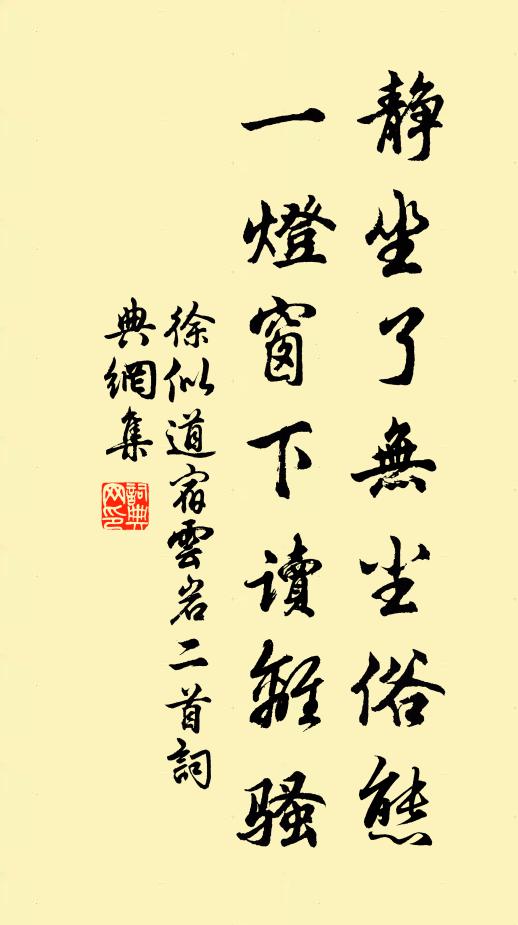 静坐了無尘俗態
一燈窗下读離骚
徐似道宿雲岩二首詞
典網集
詞典网印